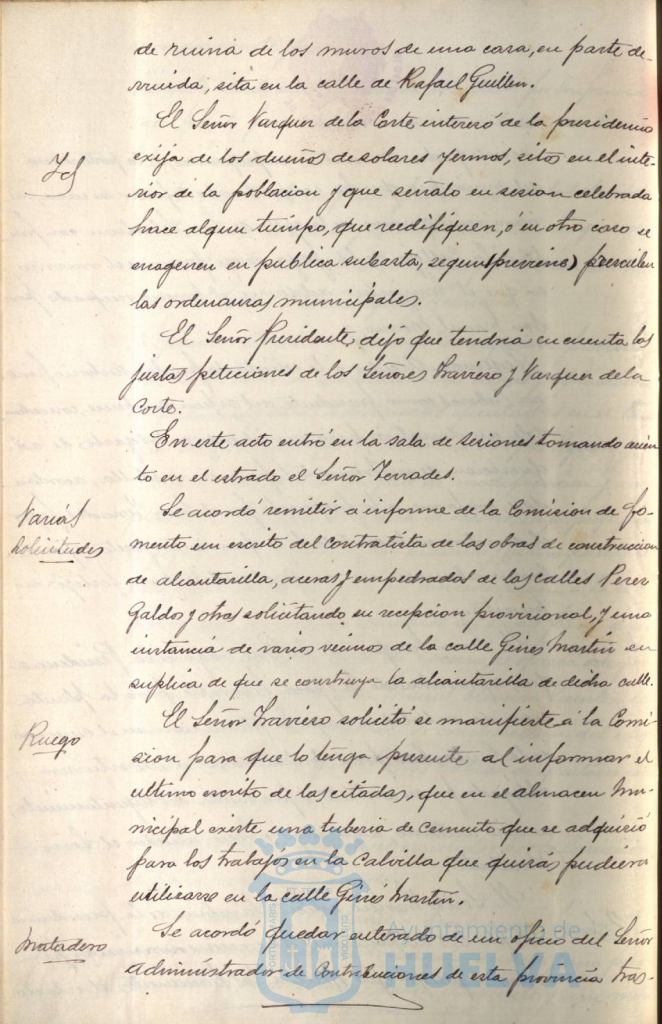 de ruina de los muros de una casa, en parte de-
rruida, sita en la calle de Rafael Guillen.
El Señor Vazquez de la Corte interesó de la presidencia
Id
exija de los dueños de solares yermos, sitos en el inte-
rior de la poblacion y que señaló en sesion celebrada
hace algun tiempo, que reedifiquen, ó en otro caso se
enagenen en publica subasta, segun (previene)
las ordenanzas municipales.
El Señor Presidente, dijo que tendria en cuenta las
justas peticiones de los Señores Traviero y Vazquez de la
Corte.
En este acto entró en la sala de sesiones tomando asien
to en el estrado el Señor Terrades.
Varias
solicitudes
Se acordó remitir á informe de la Comision de Fo-
mento un escrito del contratista de las obras de construccion
de alcantarilla, aceras y empedrados de las calles Perez
Galdos y otras solicitando su recepcion provisional, y una
instancia de varios vecinos de la calle Ginés Martin en
suplica de que se construya la alcantarilla de dicha calle.
Ruego
El Señor Traviero solicitó se manifieste á la Comi-
sion para que lo tenga presente al informar el
ultimo escrito de las citadas, que en el almacen Mu-
nicipal existe una tuberia de cemento que se adquirió
para los trabajos en la Calvilla que quizás pudiera
utilizarse en la calle Ginés Martin.
Matadero
Se acordó quedar enterado de un oficio del Señor
Administrador de Contribuciones de esta provincia tras-
Ayuntamiento de
HUELVA